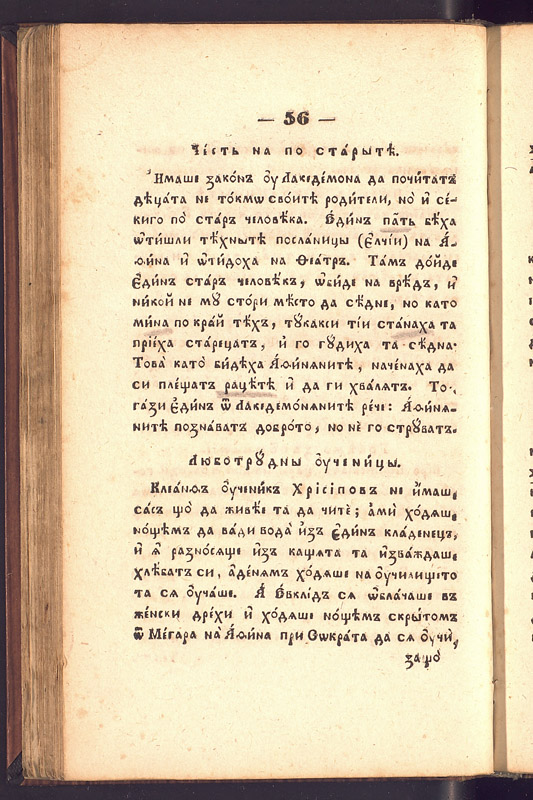 — 56 —
Че́сть на по ста́рытѣ.
И҆маше зако́нъ ᲂу҆ Лакеде́мона да почи́татъ
дѣца́та не то́кмѡ сво́итѣ роди́тели, но̀ и҆ сѐ-
киго по̀ ста́ръ человѣ́ка. Е҆ди́нъ па́ть бѣ́ха
ѿти́шли тѣ́хнытѣ посла́ницы (є҆лчі́и) на А҆-
ѳи́на и҆ ѿти́доха на Ѳеа́тръ. Та́мъ до́йде
є҆ди́нъ ста́ръ человѣ́къ, ѡ҆би́де на врѣ́дъ, и҆
ни́кой не мꙋ̀ сто́ри мѣ́сто да сѣ́дне, но като
ми́на по кра́й тѣ́хъ, тꙋ́какси ті́и ста́наха та
прїе́ха ста́рецатъ, и҆ го гꙋ́диха та сѣ́дна.
Това̀ като̀ ви́дѣха А҆ѳи́нянитѣ, наче́наха да
си пле́щатъ раце́тѣ и҆ да ги хва́лятъ. То-
га́зи є҆ди́нъ ѿ Лакедемо́нянитѣ ре́че: А҆ѳи́ня-
нитѣ позна́ватъ добро́то, но нѐ го стрꙋ́ватъ.
Люботрꙋ́дны ᲂу҆чени́цы.
Клеа́нѳъ ᲂу҆чени́къ Хрісі́повъ не и҆́маше
са́съ що̀ да живѣ́е та да читѐ; а҆мѝ хо́дяше
но́щѣмъ да ва́ди вода̀ и҆зъ є҆ди́нъ кла́денецъ,
и҆ я҆ разно́сяше и҆зъ ка́щята та и҆зва́ждаше
хлѣ́батъ си, а҆ де́нямъ хо́дяше на ᲂу҆чи́лището
та ся ᲂу҆ча́ше. А҆ Е҆вклі́дъ ся ѡ҆блача́ше въ
же́нски дре́хи и҆ хо́дяше но́щѣмъ скры́томъ
ѿ Ме́гара на А҆ѳи́на при Сѡкра́та да ся ᲂу҆чѝ,
защо̀